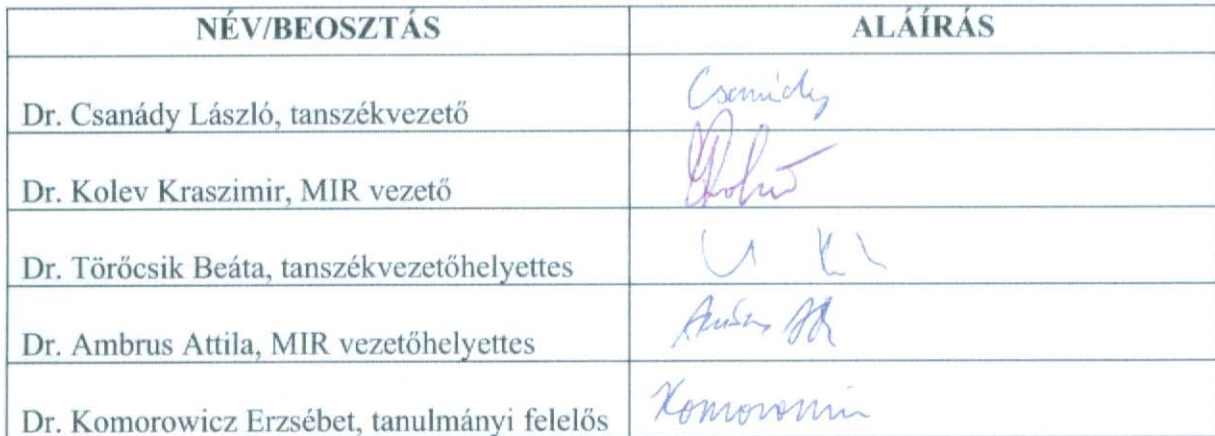 NÉV/BEOSZTÁS ALÁÍRÁS
Dr. Csanády László, tanszékvezető Csanády
Dr. Kolev Kraszimir, MIR vezető
Dr. Törőcsik Beáta, tanszékvezetőhelyettes
Dr. Ambrus Attila, MIR vezetőhelyettes
Dr. Komorowicz Erzsébet, tanulmányi felelős